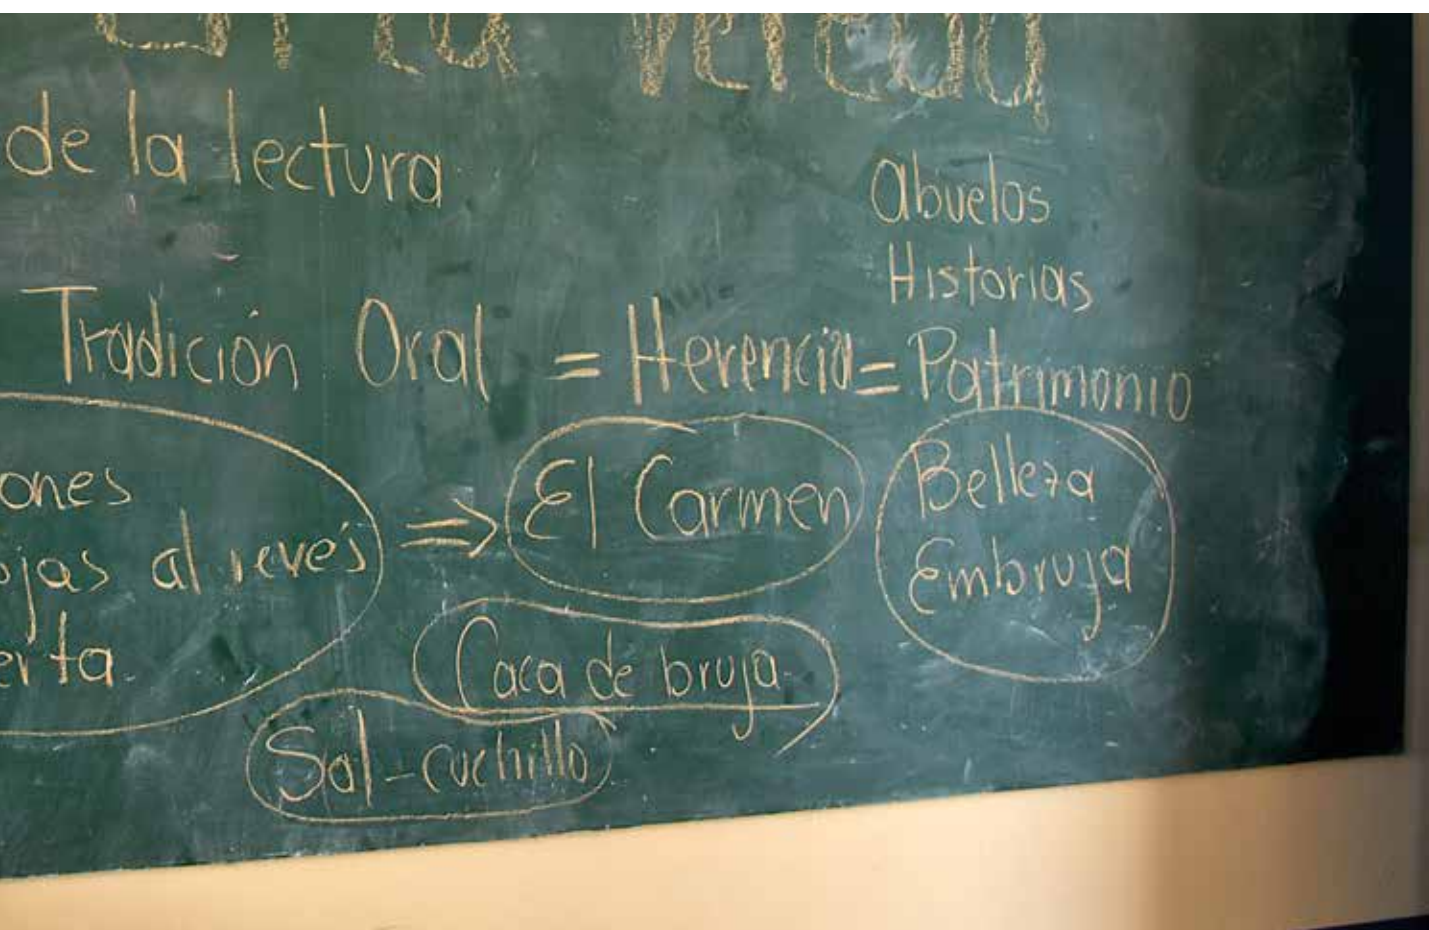 de la lectura
Abuelos
Historias
Tradición Oral = Herencia = Patrimonio
ones
ejas al revés
erta.
⇒ El Carmen
Belleza
Embruja
Caca de bruja.
Sal-cuchillo